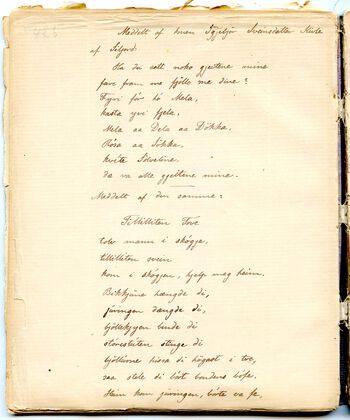 Meddelt af konen Ingebjør Svensdatter Kivle
af Siljord:
Ha du sett noko gjeitene mine
fare fram um fjölle me dine?
Fyri fór hó Mela,
hasta yvi fjela,
Mela aa Dela aa Dökka,
Rósa aa Sökka,
kvite Sölveline,
da va alle gjeitene mine.
Meddelt af den samme:
Tillilliten Tove
tolv mann i skógje,
tillilliten svein
kom i skógjen, hjelp meg heim.
Bikkjune hængde di,
juringen dængde di,
bjöllekyren binde di
störestuten stinge di
bjöllune hissa di högast i tre,
saa stele di bórt bondens böfe.
Heim kom juringen, bórte va fe,